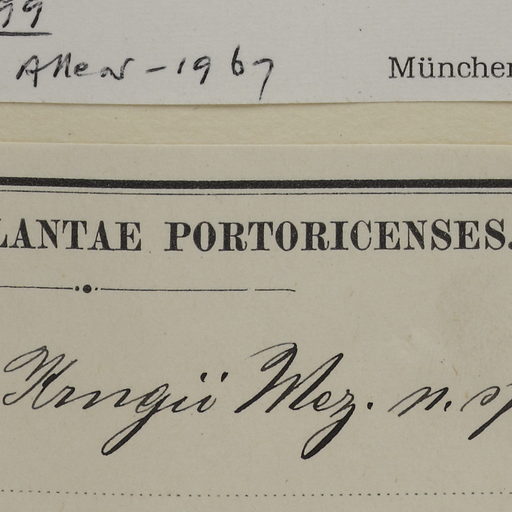 99
Allen - 1967
München
LANTAE PORTORICENSES.
Krugii Mez. n. sp